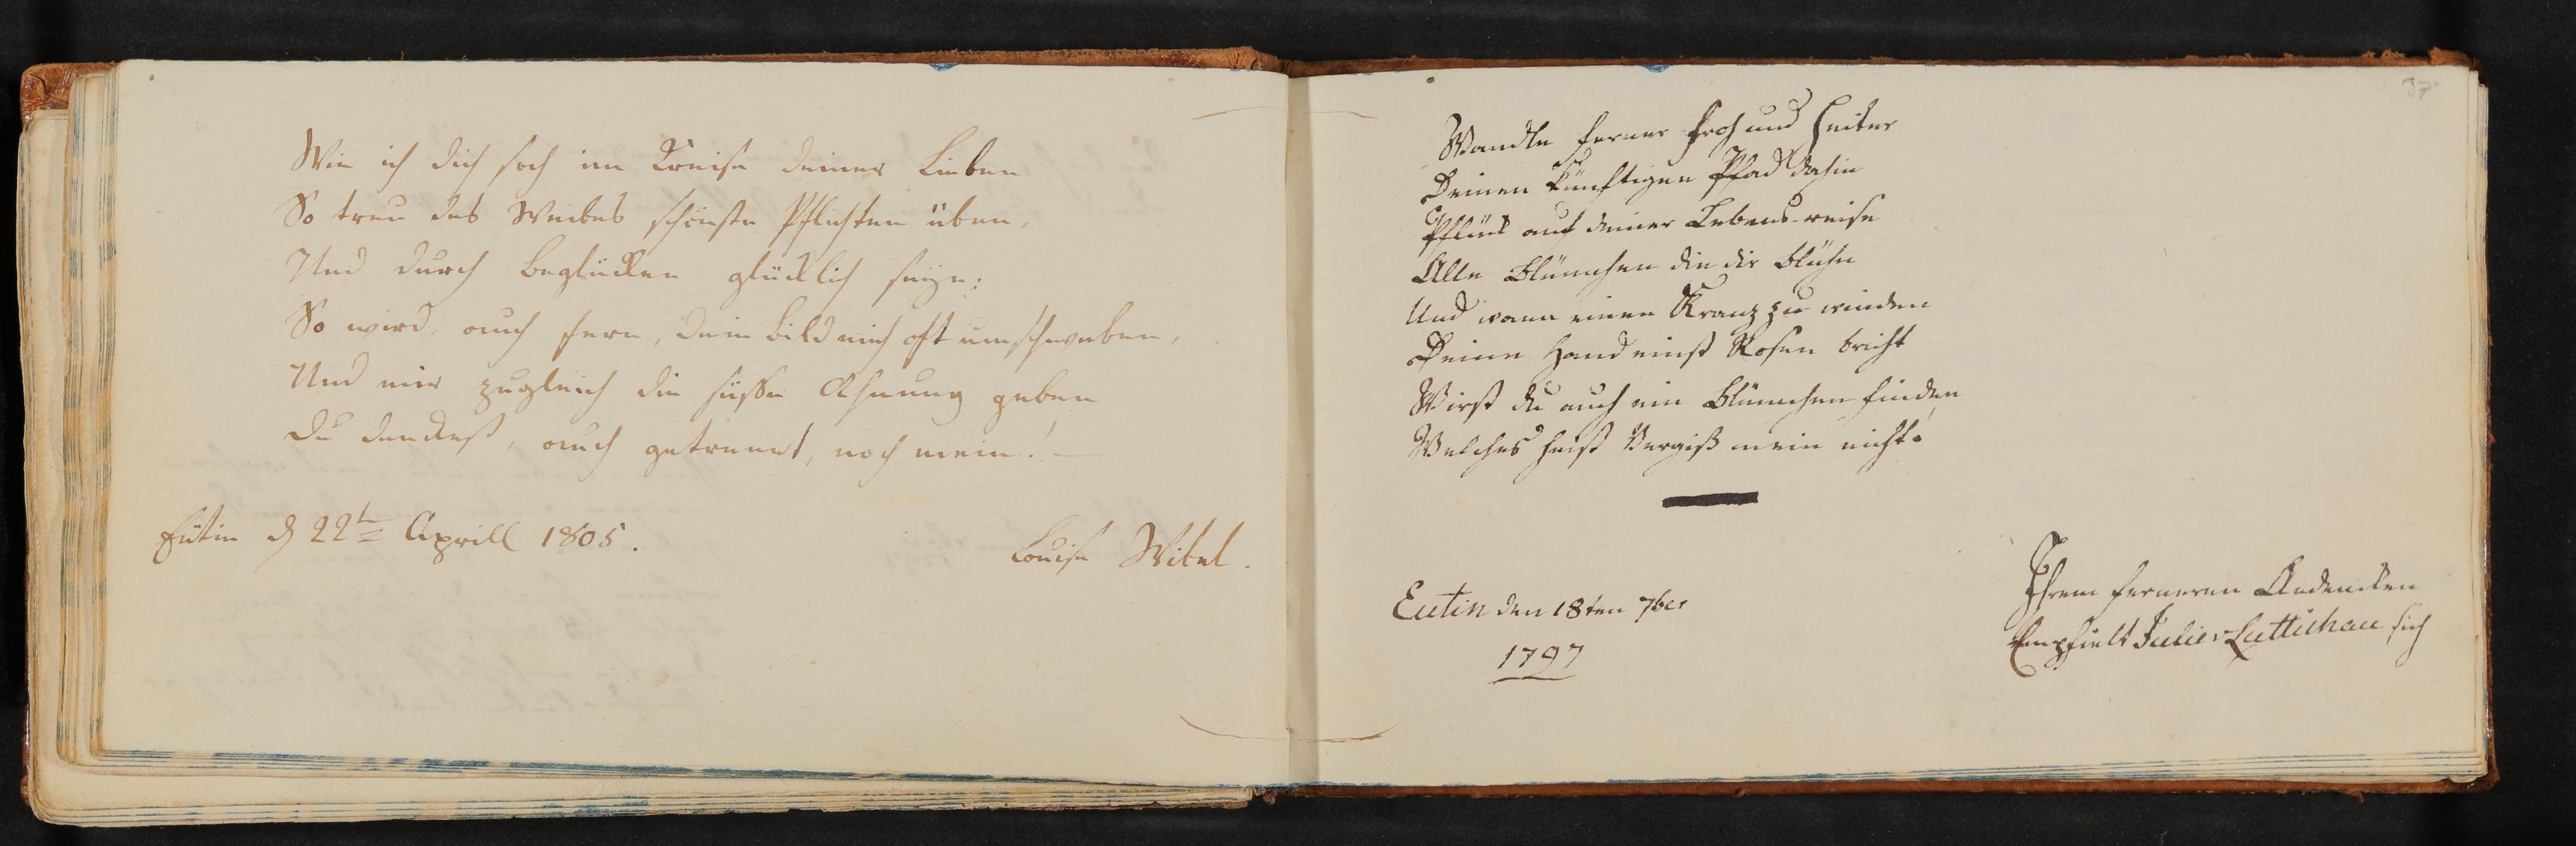 Wie ich dich sah im Kreise deiner Lieben
So treu des Weibes schönste Pflichten üben,
Und durch beglücken glücklich seyn:
So wird, auch fern, dein Bild mich oft umschweben,
Und mir zugleich die süsse Ahnung geben
Du denckest, auch getrennt, noch mein! —
Eutin d 22t Aprill 1805.
Louise Wibel.
37
Wandle ferner froh und heiter
Deinen künftigen Pfad dahin
Pflük auf deiner Lebens-reise
Alle Blümchen die dir blühn
Und wann einen Kranz zu winden
Deine Hand einst Rosen bricht
Wirst du auch ein Blümchen finden
Welches heist Vergiß mein nicht.
Eutin den 18ten 7ber
1797
Ihrem ferneren Andencken
Empfielt Julie v Luttichau sich